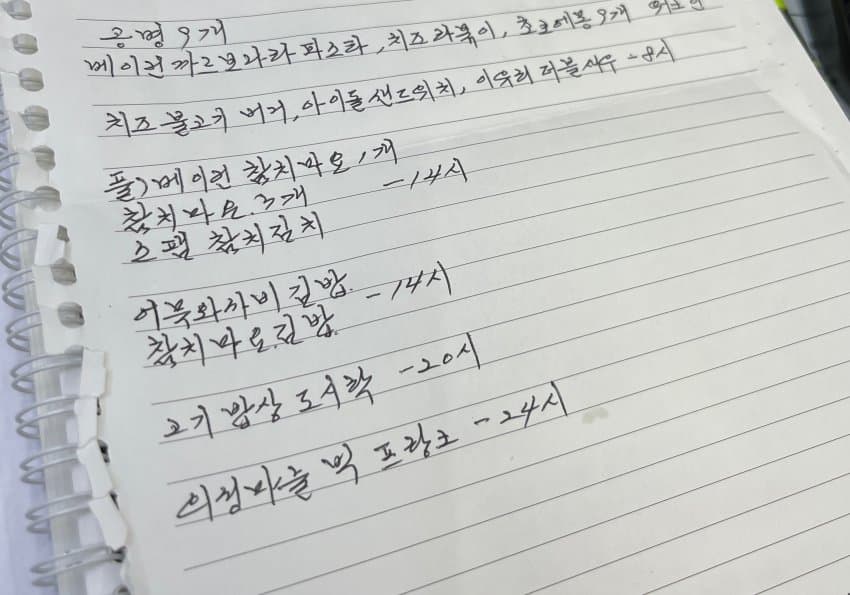 공병 9개
베이컨까르보나라 파스타, 치즈라볶이, 초코에몽 9개
치즈불고기 버거, 아이돌샌드위치, 이유리 더블새우 -8시
플) 베이컨 참치마요 1개
참치마요. 3개 -14시
스팸 참치김치
어묵와사비 김밥. -14시
참치마요.김밥.
고기 밥상 도시락 -20시
의성마늘 빅 프랑크 -24시